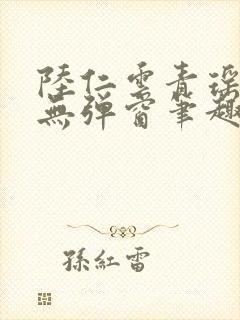 陸仁雲青瑤
無彈窗筆趣
孫紅雷